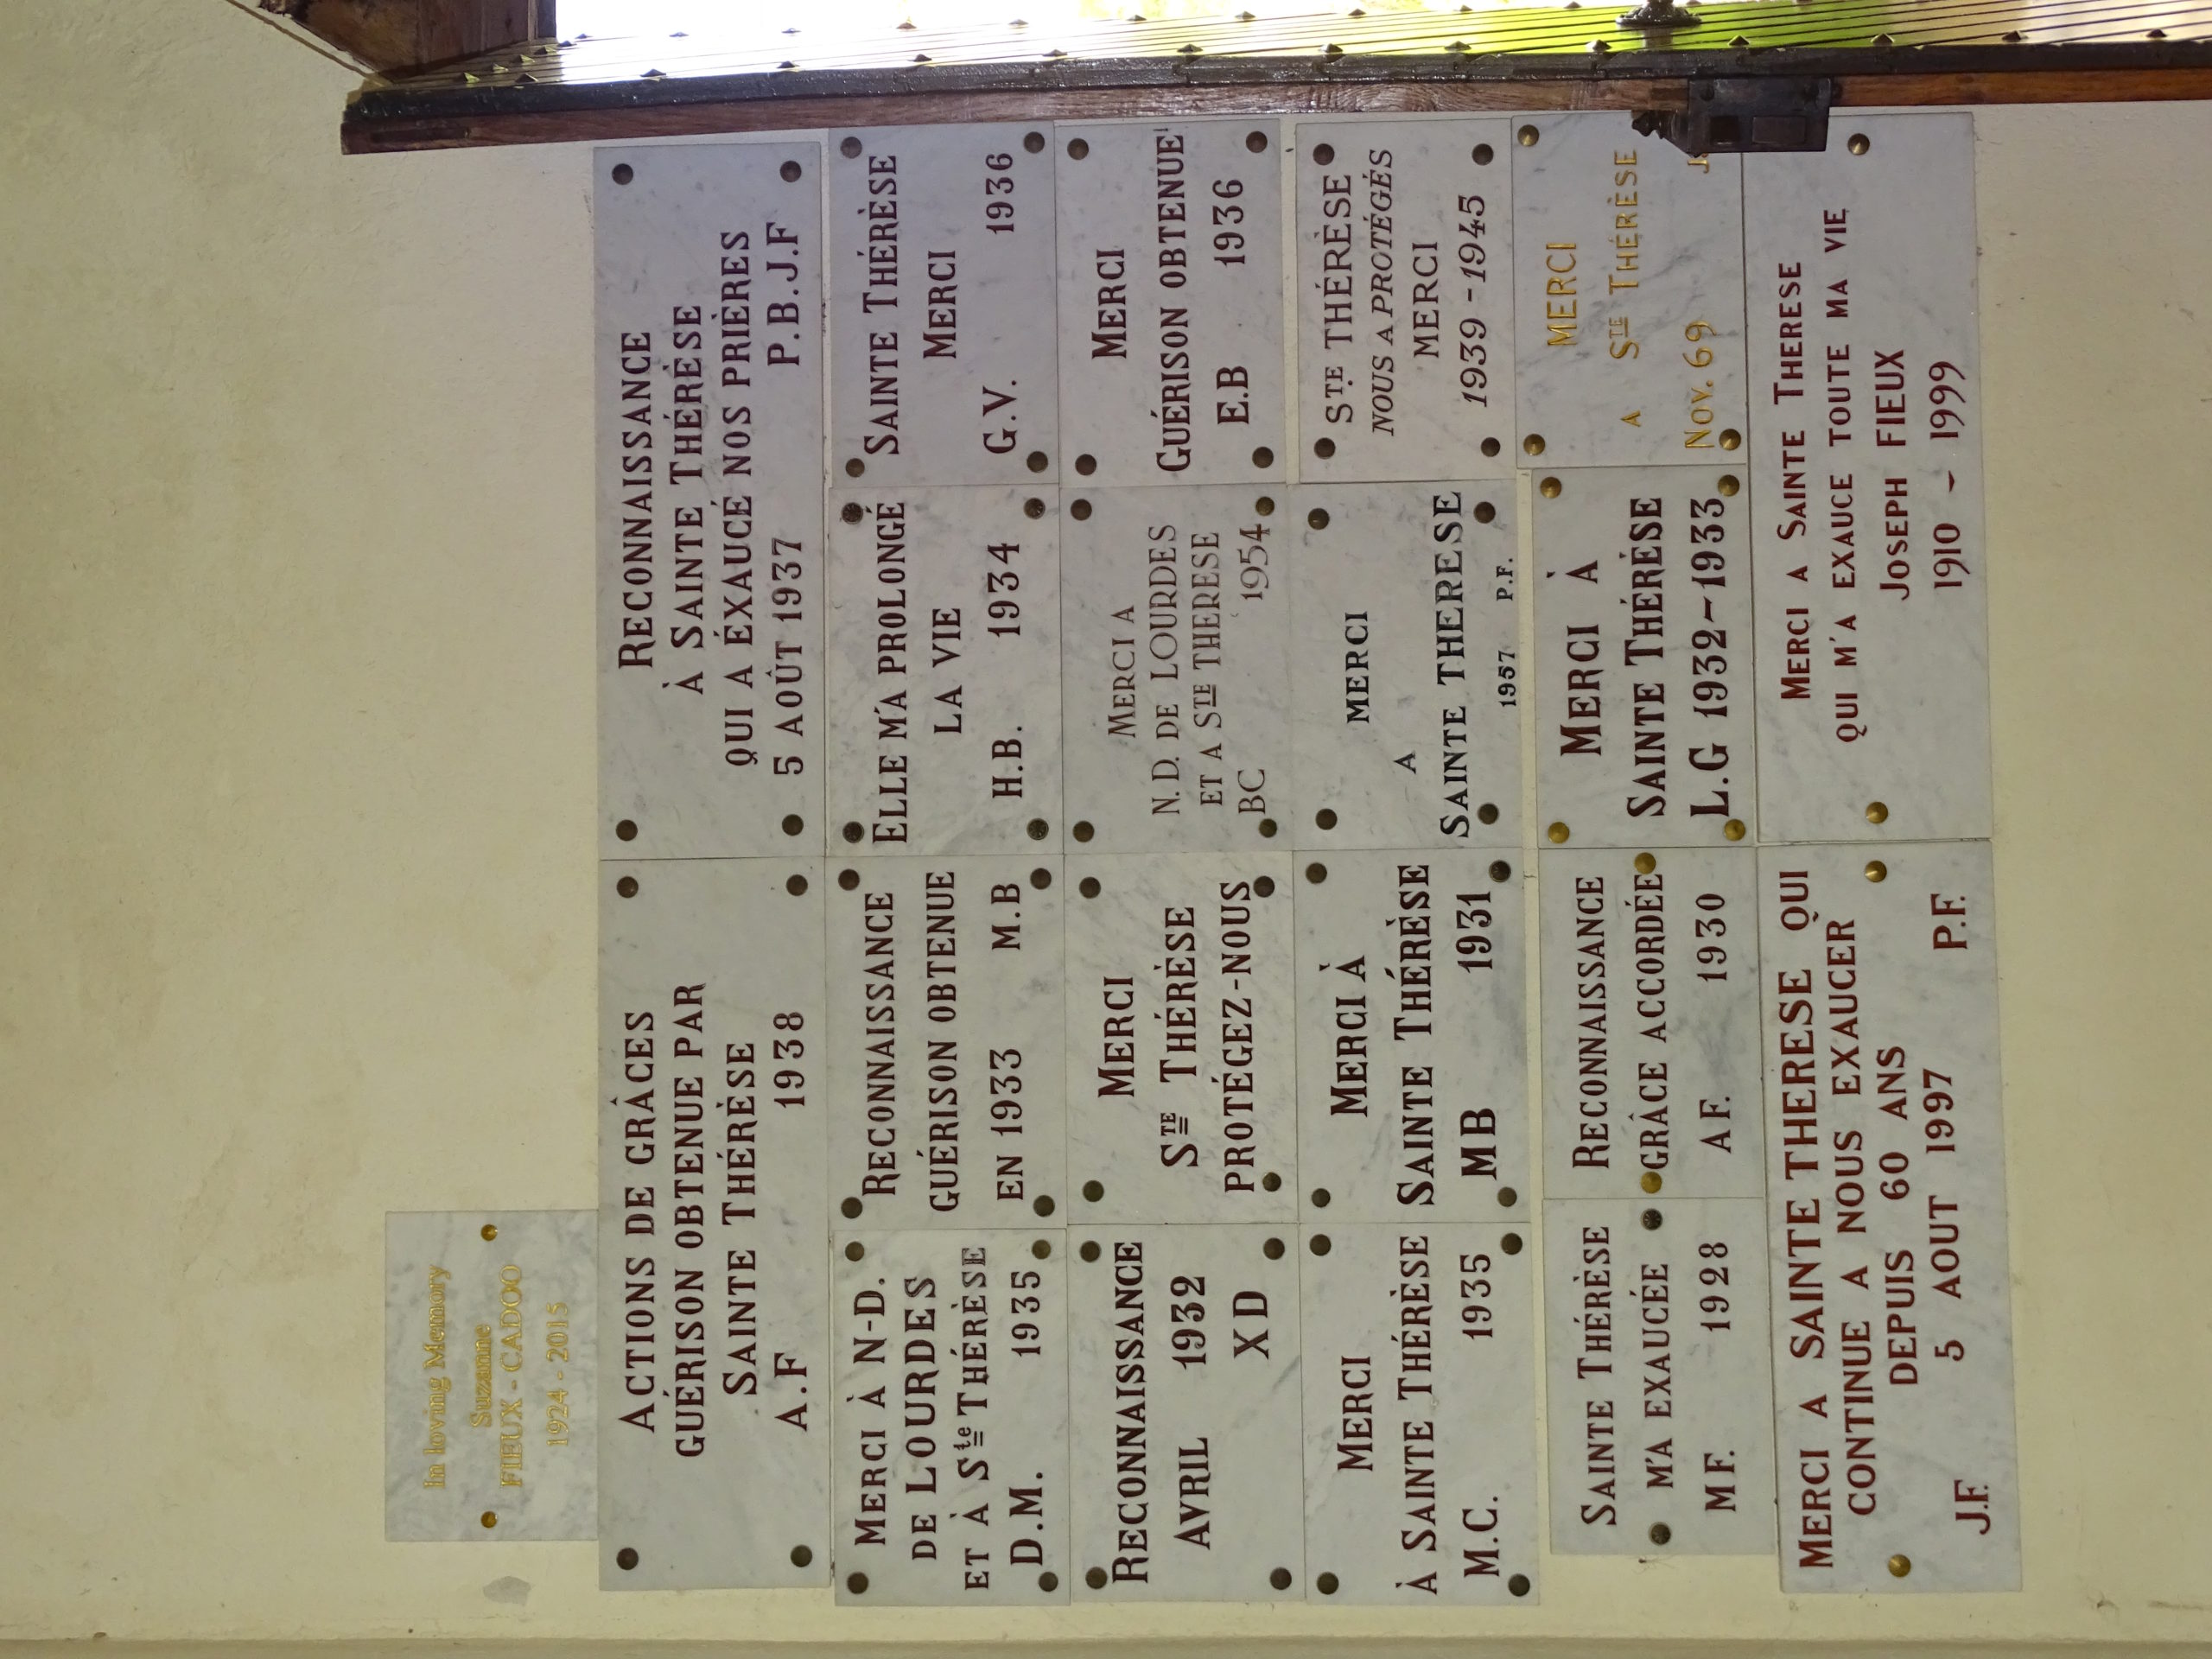 In loving Memory
Suzanne
FIEUX - CADOO
1924 - 2015
ACTIONS DE GRÂCES
GUÉRISON OBTENUE PAR
SAINTE THÉRÈSE
A.F 1938
RECONNAISSANCE
À SAINTE THÉRÈSE
QUI A ÉXAUCÉ NOS PRIÈRES
5 AOÛT 1937 P.B.J.F
MERCI À N-D.
DE LOURDES
ET À Ste THÉRÈSE
D.M. 1935
RECONNAISSANCE
GUÉRISON OBTENUE
EN 1933 M.B
ELLE M'A PROLONGÉ
LA VIE
H.B. 1934
SAINTE THÉRÈSE
MERCI
G.V. 1936
RECONNAISSANCE
AVRIL 1932
X D
MERCI
STE THÉRÈSE
PROTÉGEZ-NOUS
MERCI A
N.D. DE LOURDES
ET A STE THERESE
BC 1954
MERCI
GUÉRISON OBTENUE
E.B 1936
MERCI
À SAINTE THÉRÈSE
M.C. 1935
MERCI À
SAINTE THÉRÈSE
MB 1931
MERCI
A
SAINTE THERESE
1957 P.F.
STE THÉRÈSE
NOUS A PROTÉGÉS
MERCI
1939 - 1945
SAINTE THÉRÈSE
M'A EXAUCÉE
M F. 1928
RECONNAISSANCE
GRÂCE ACCORDÉE
A F. 1930
MERCI À
SAINTE THÉRÈSE
L.G 1932-1933
MERCI
A STE THÉRÈSE
NOV. 69
MERCI A SAINTE THERESE QUI
CONTINUE A NOUS EXAUCER
DEPUIS 60 ANS
J.F. 5 AOUT 1997 P.F.
MERCI A SAINTE THERESE
QUI M'A EXAUCE TOUTE MA VIE
JOSEPH FIEUX
1910 - 1999